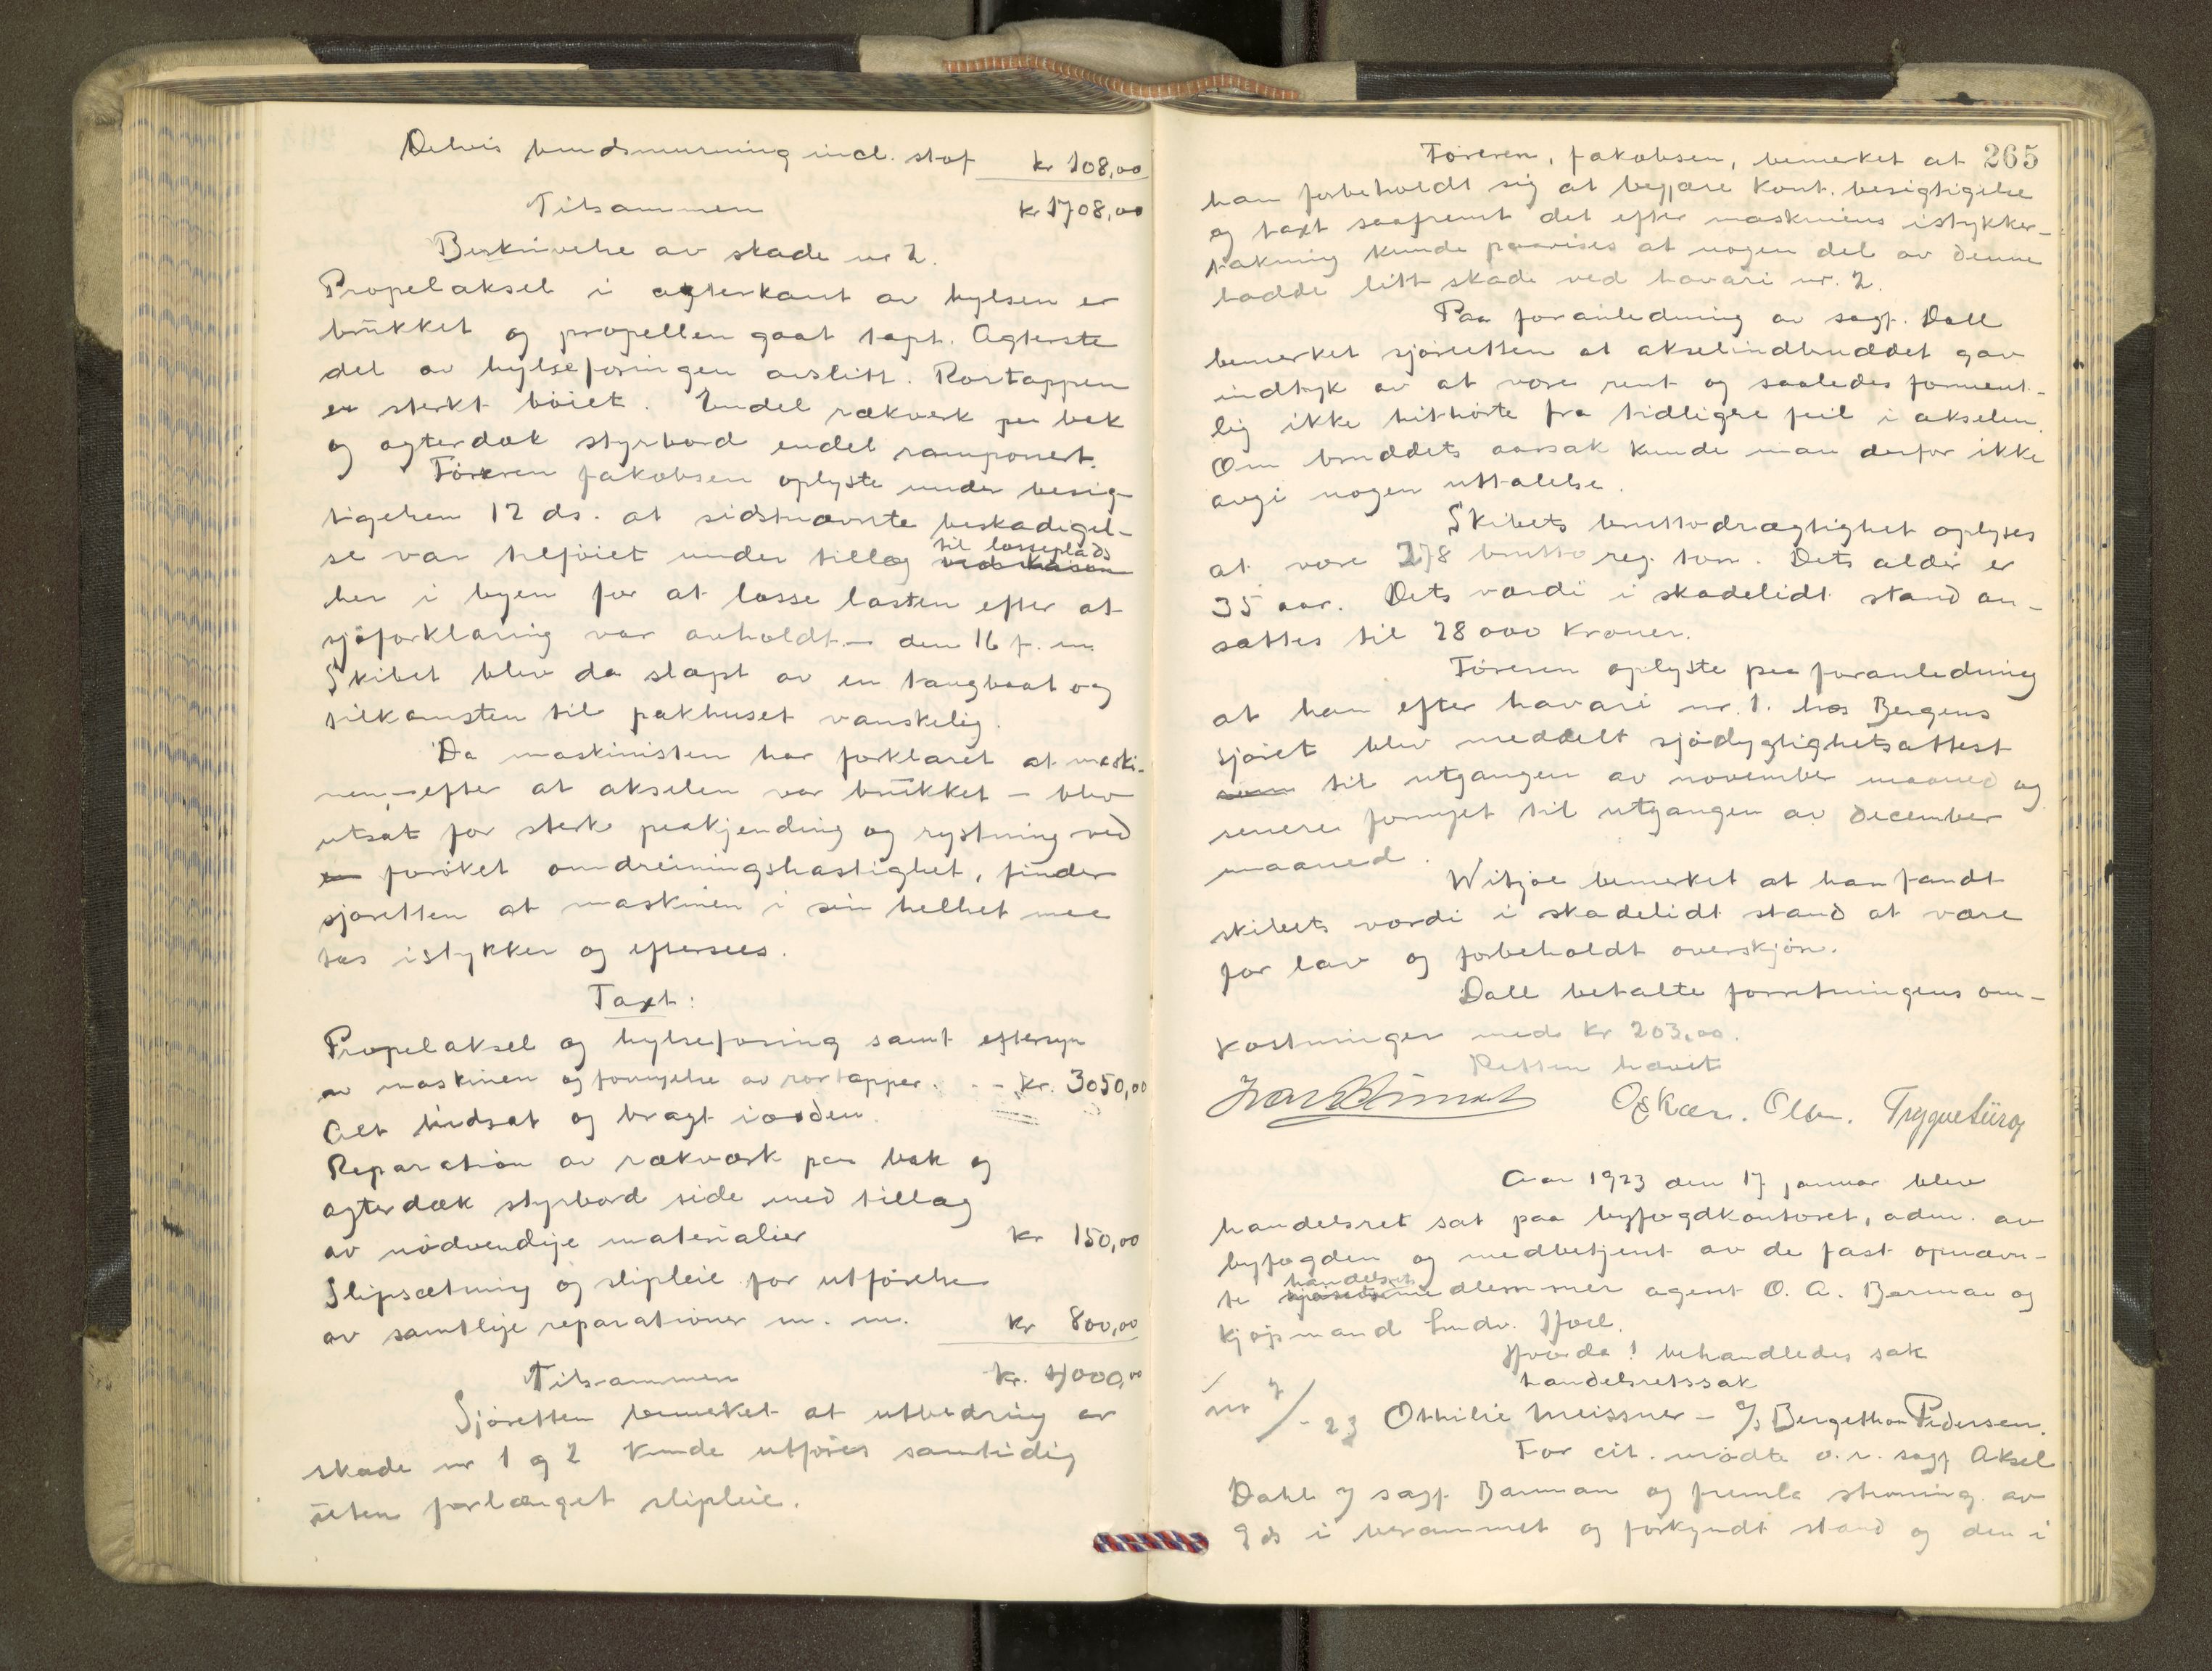 Delvis bundsmurning incl. stof kr 108,00
Tilsammen kr 1708,00
Beskrivelse av skade nr 2.
Propelaksel i agterkant av hylsen er
brukket og propellen gaat tapt. Agterste
del av hylseforingen avslitt. Rortappen
er sterkt böiet. Endel rækverk paa bak
og agterdæk styrbord endel ramponert.
Föreren Jakobsen oplyste under besig-
tigelsen 12 ds. at sidstnævnte beskadigel-
se var tilföiet under tillæg til losseplads
her i byen for at losse lasten efter at
sjöforklaring var avholdt - den 16 f. m.
Skibet blev da slæpt av en taugbaat og
tilkomsten til pakhuset vanskelig.
Da maskinisten har forklaret at maski-
nen, - efter at akselen var brukket - blev
utsat for sterk paakjending og rystning ved
foröket omdreiningshastighet, finder
sjöretten at maskinen i sin helhet maa
tas istykker og eftersees.
Taxt:
Propelaksel og hylseforing samt eftersyn
av maskinen og fornyelse av rortapper. - - kr. 3050,00
Alt indsat og bragt i orden.
Reparation av rækværk paa bak og
agterdæk styrbord side med tillæg
av nödvendige materialier kr 150,00
Slipsætning og slipleie for utförelse
av samtlige reparationer m. m. kr 800,00
Tilsammen kr. 4000,00
Sjöretten bemerket at utbedring av
skade nr 1 og 2 kunde utföres samtidig
uten forlænget slipleie.
265
Föreren, Jakobsen, bemerket at
han forbeholdt sig at begjære kont. besigtigelse
og taxt saafremt det efter maskinens istykker-
takning kunde paavises at nogen del av denne
hadde litt skade ved havari nr. 2.
Paa foranledning av sagf. Dall
bemerket sjöretten at akselindbruddet gav
indtryk av at være rent og saaledes forment-
lig ikke hithörte fra tidligere feil i akselen.
Om bruddets aarsak kunde man derfor ikke
avgi nogen uttalelse.
Skibets bruttodrægtighet oplyses
at være 278 brutto reg. tons. Dets alder er
35 aar. Dets værdi i skadelidt stand an-
sættes til 28000 kroner.
Föreren oplyste paa foranledning
at han efter havari nr. 1. hos Bergens
sjöret blev meddelt sjödygtighetsattest
til utgangen av november maaned og
senere fornyet til utgangen av december
maaned.
Witzoe bemerket at han fandt
skibets værdi i skadelidt stand at være
for lav og forbeholdt overskjön.
Dall betalte forretningens om-
kostninger med kr 203,00.
Retten hævet
Oskar. Olsen. Trygve
Aar 1923 den 17 januar blev
handelsret sat paa byfogdkontoret, adm. av
byfogden og medbetjent av de fast opnævn-
te handelsretsmedlemmer agent O. A. Barman og
kjöpmand Ludv. Hoel.
Hvorda! behandledes sak
handelsretssak
nr 7/- 23 Othilie Meissner - A/S Bergethon Pedersen.
For cit. mödte o.r. sagf Aksel
Dahl v/ sagf. Barman og fremla stevning av
9 ds i berammet og forkyndt stand og den i